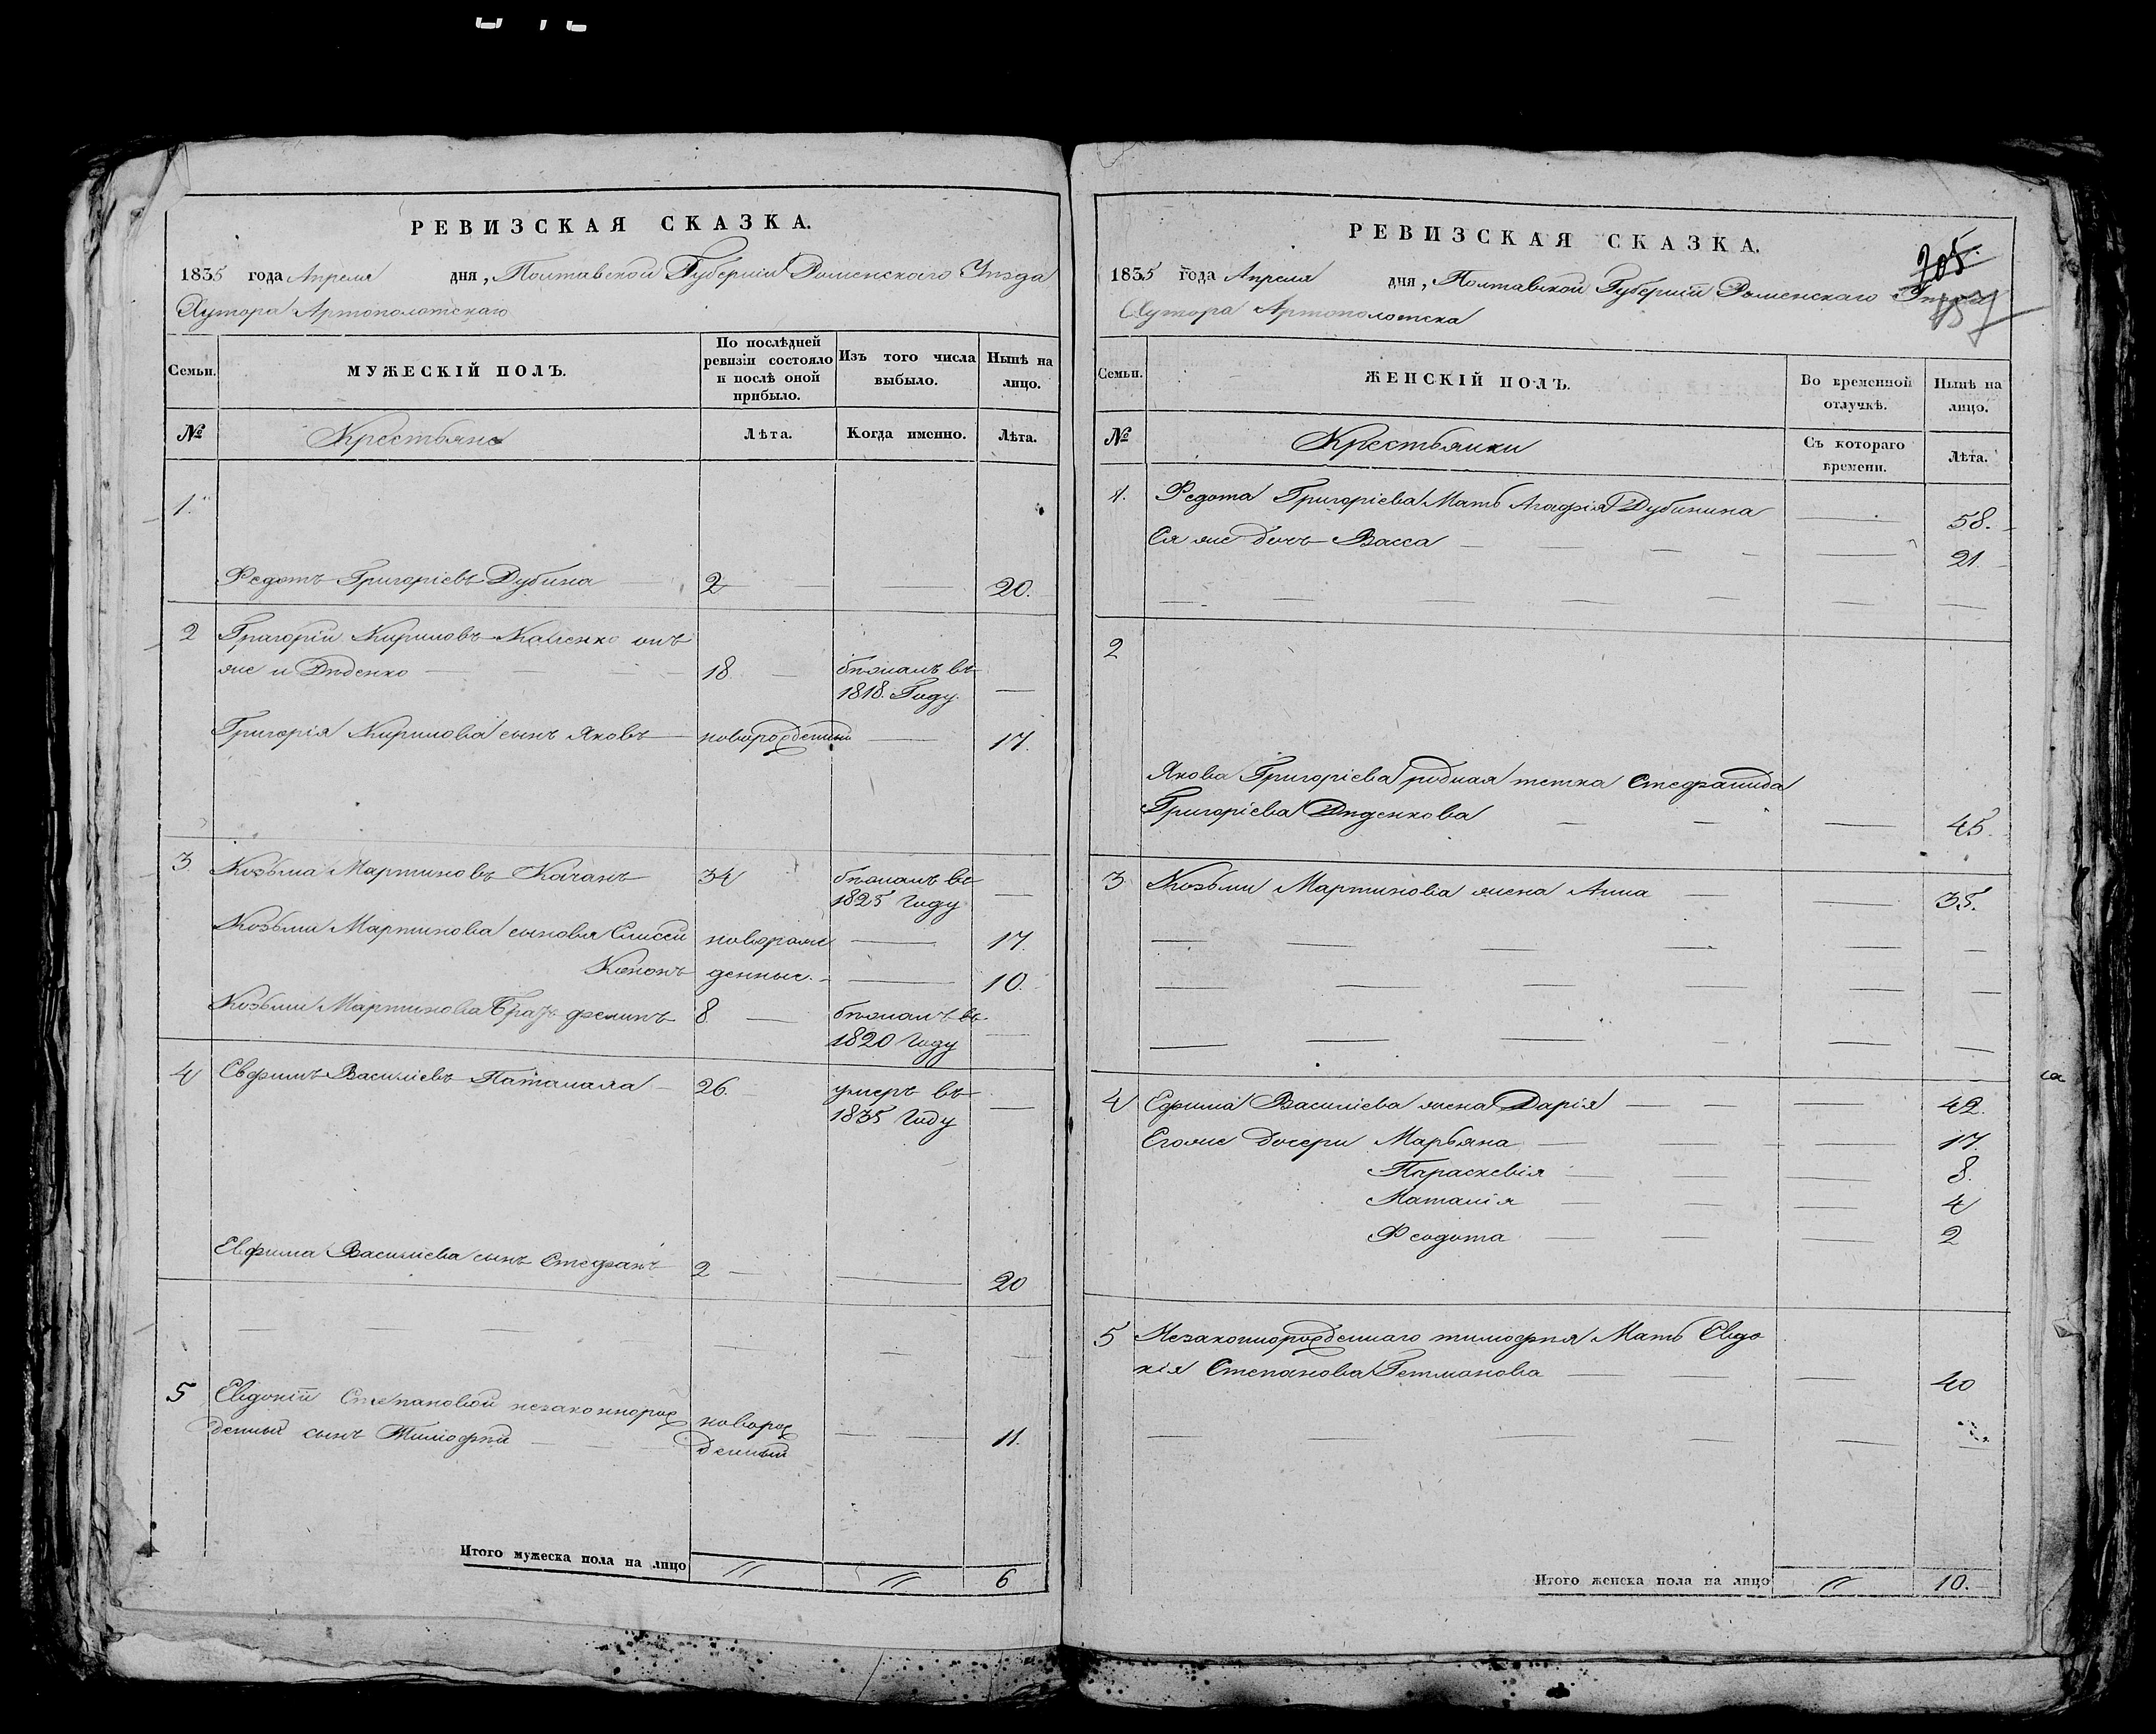 РЕВИЗСКАЯ СКАЗКА.
1835 года Апреля дня, Полтавской Губернии Роменскаго Уѣзда
Хутора Артополотскаго
Семьи.
МУЖЕСКІЙ ПОЛЪ.
По послѣдней ревизіи состояло и послѣ оной прибыло.
Изъ того числа выбыло.
Нынѣ на лицо.
№ Крестьяне Лѣта. Когда именно. Лѣта.
1.
Федотъ Григоріевъ Дубина 2 20.
2 Григорій Кириловъ онъ
же и Дѣденко 18 бѣжалъ въ
1818. Году.
Григорія Кирилова сынъ Яковъ новорожденный 17.
3 Козьма Мартиновъ Качанъ 34 бѣжалъ въ
1825 Году
Козьми Мартинова сыновя Елисей новорож 17.
Кононъ денные. 10.
Козьми Мартинова братъ Филипъ 8 бѣжалъ въ
1820 Году
4 Евфимъ Василіевъ 26. умеръ въ
1835 Году
Евфима Василіева сынъ Стефанъ 2 20
5 Евдокіи Степановой незаконнорож новорож
денный сынъ Тимофѣй денный 11.
Итого мужеска пола на лицо 〃 〃 6
РЕВИЗСКАЯ СКАЗКА.
205.
1835 года Апреля дня, Полтавской Губерніи Роменскаго Уѣзда
Хутора Артополотска
Семьи.
ЖЕНСКІЙ ПОЛЪ.
Во временной отлучкѣ.
Нынѣ на лицо.
№ Крестьянки Съ котораго времени. Лѣта.
1. Федота Григоріева Мать Агафія Дубинина 58.
Ея же дочь Васса 21.
2
Якова Григоріева родная тетка Стефанида
Григоріева Дѣденкова 45.
3 Козьми Мартинова жена Анна 35.
4 Ефима Василіева жена Дарія 42.
Егоже дочери Марьяна 17.
Параскевія 8.
Наталія 4
Феодота 2
5 Незаконнорожденнаго тимофѣя Мать Евдо
кія Степанова Гетманова 40
Итого женска пола на лицо 〃 10.